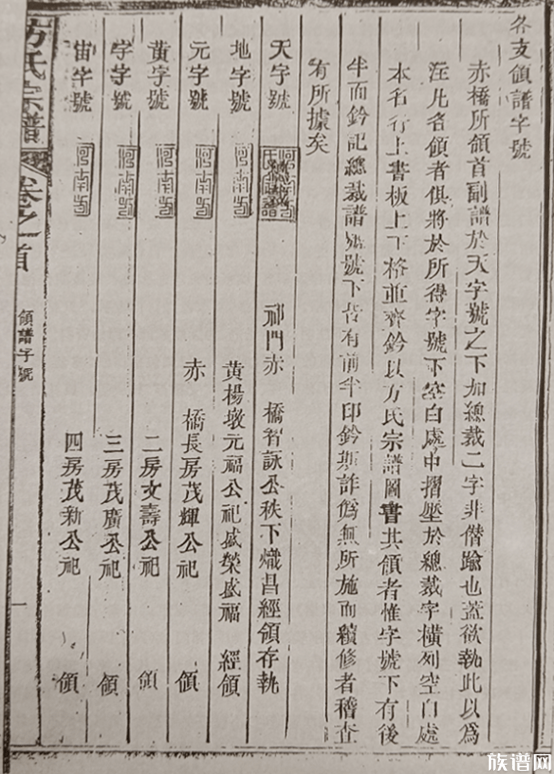 各支領譜字號
赤橋所領首副譜於天字號之下加總裁二字非僭踰也蓋欲執此以為
此各領者俱將於所得字號下空白處中摺壓於總裁字橫列空白處
本名行上書板上下格並齊鈐以方氏宗譜圖書其領者惟字號下有後
半而鈐記總裁譜號下皆有前半印鈐斯詐偽無所施而續修者稽查
有所據矣
天字號 祁門赤橋智詠公秩下熾昌經領存執
地字號 河南方 黃楊墩元福公祀盛榮盛福 經領
元字號 河南方 赤橋長房茂輝公祀 領
黃字號 河南方 二房文壽公祀 領
宇字號 河南方 三房茂廣公祀 領
宙字號 河南方 四房茂新公祀 領
方氏宗譜 卷之首 領譜字號 一
族谱网